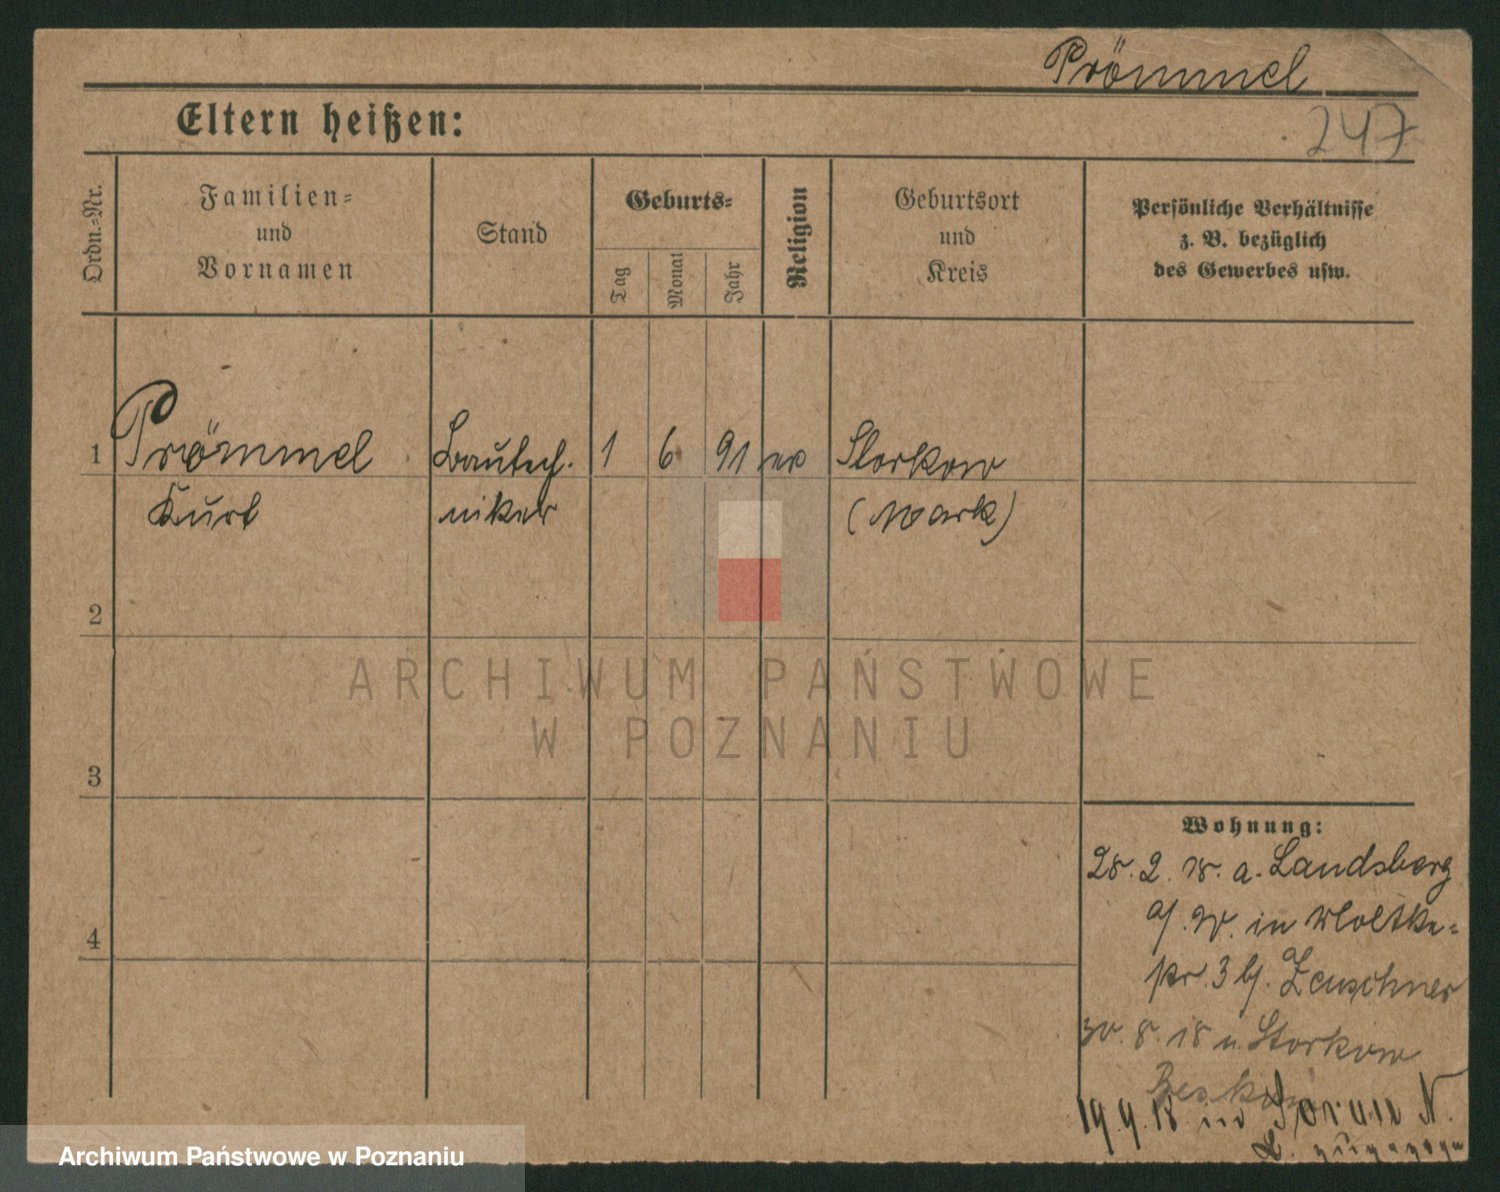 Prömmel
Eltern heißen:
247
Ordn.=Nr.
Familien=
und
Vornamen
Stand
Geburts=
Tag
Monat
Jahr
Religion
Geburtsort
und
Kreis
Persönliche Verhältnisse
z. B. bezüglich
des Gewerbes usw.
1 Prömmel Bautech. 1 6 91 ev Storkow
Kurt niker (Mark)
2
3
4
Wohnung:
28. 2. 18. a. Landsberg
a/. W. in Moltke-
str. 3 b/. Zeuschner
30. 8. 18 n. Storkow
19.9.18 in Sorau N.
L. zugezogen
ARCHIWUM PAŃSTWOWE
W POZNANIU
Archiwum Państwowe w Poznaniu